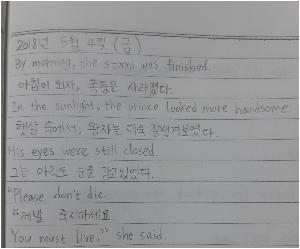 2018년 5월 4일 (금)
By morning, the storm was finished.
아침이 되자, 폭풍은 사라졌다.
In the sunlight, the prince looked more handsome.
햇살 속에서, 왕자는 더욱 잘생겨보였다.
His eyes were still closed.
그는 아직도 눈을 감고있었다.
"Please don't die.
"제발 죽지마세요.
You must live," she said.